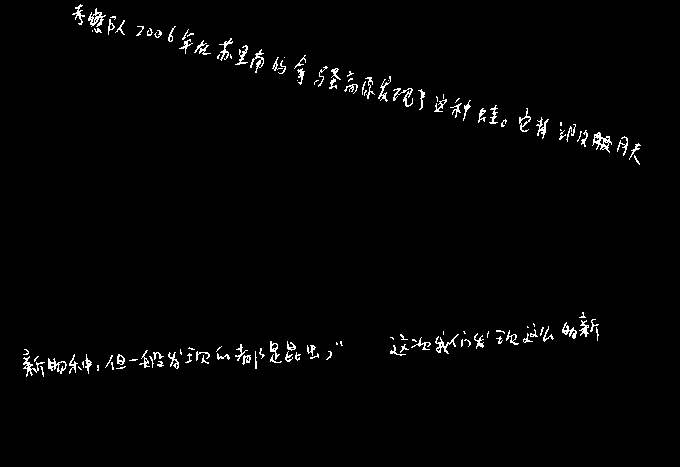 考察队2006年在苏里南的拿骚高原发现了这种蛙。它背部皮肤
新物种,但一般发现的都是昆虫,”
这次我们发现这么的新